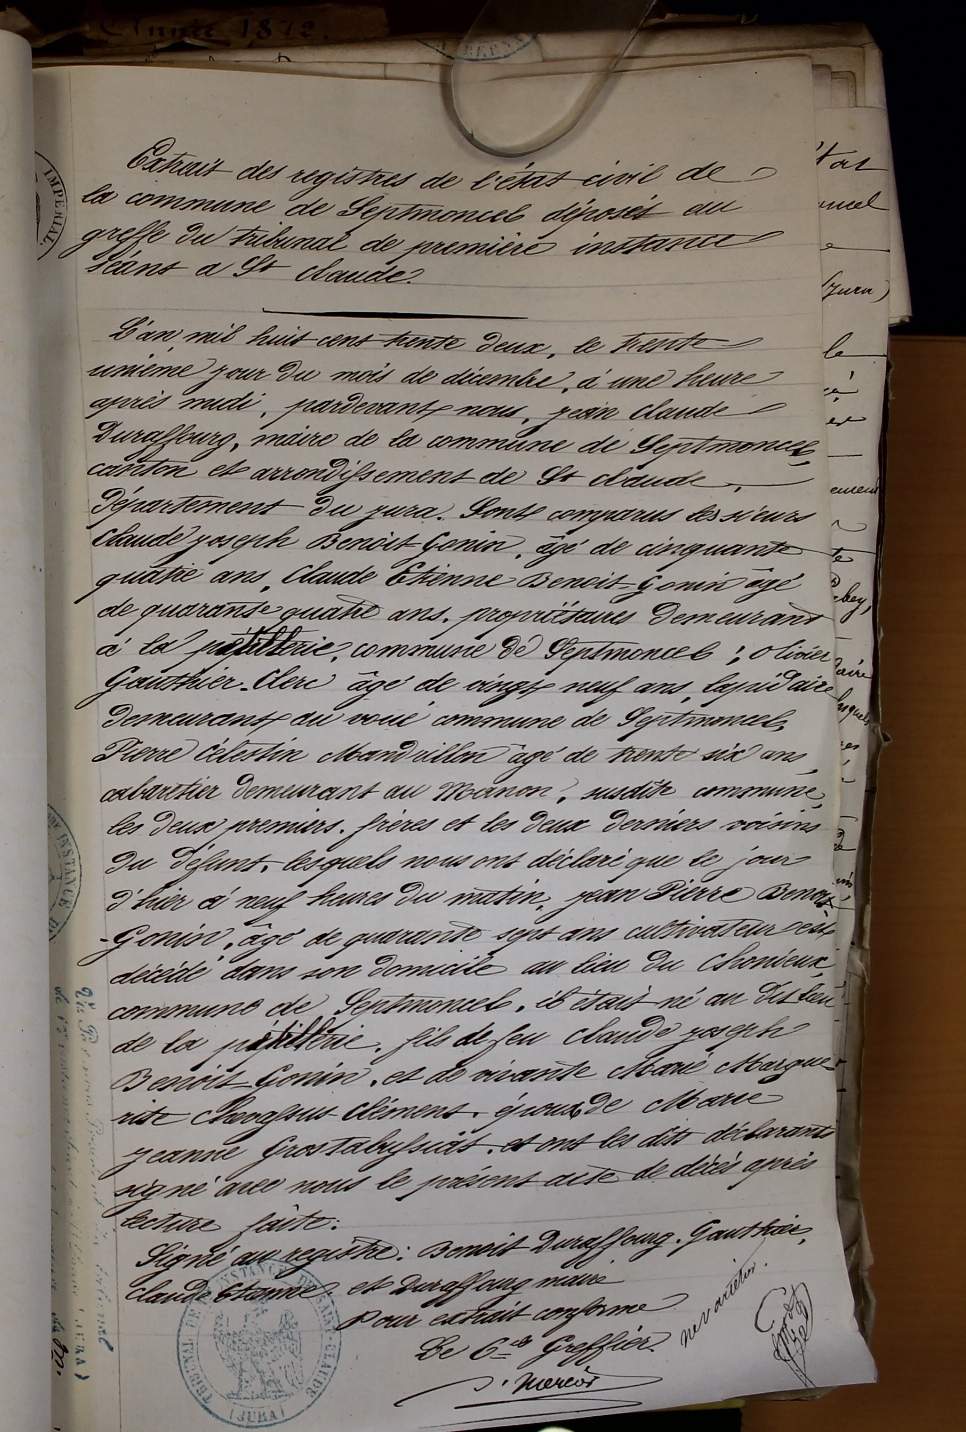 Année 1872.
Extrait des registres de l'état civil de
la commune de Septmoncel déposés au
greffe du tribunal de première instance
séant a St Claude.
L'an mil huit cent trente deux, le trente
unième jour du mois de décembre, à une heure
après midi, pardevant nous, jean Claude
Duraffourg, maire de la commune de Septmoncel,
canton et arrondissement de St Claude,
Département du jura. Sont comparus les sieurs
Claude joseph Benoit Gonin, âgé de cinquante
quatre ans, Claude Etienne Benoit-Gonin âgé
de quarante quatre ans, propriétaires Demeurant
à la commune de Septmoncel; olivier
Gauthier-Clerc âgé de vingt neuf ans, lapidaire
Demeurant au commune de Septmoncel,
Pierre Célestin Mandrillon âgé de trente six ans,
cabaretier Demeurant au Manon, susdite commune,
les deux premiers, frères et les deux derniers voisins
du défunt, lesquels nous ont déclaré que le jour
d'hier à neuf heures du matin, jean Pierre Benoit
-Gonin, âgé de quarante sept ans cultivateur est
décédé dans son domicile au lieu du
commune de Septmoncel, il était né au dit lieu
de la fils de feu Claude joseph
Benoit Gonin, et de vivante Marie Margue-
rite Clément, époux de Marie
jeanne et ont les dits déclarants
signé avec nous le présent acte de décès après
lecture faite.
Signé au registre: Benoit Duraffourg, Gauthier,
Claude Etienne, et Duraffourg maire
Pour extrait conforme
Le Greffier.
ne varietur.
TRIBUNAL DE 1RE INSTANCE DE SAINT-CLAUDE
(JURA)
IMPERIAL
INSTANCE DE